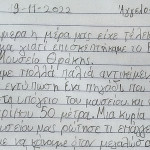 9-11-2022 Άγγελος
μερα η μέρα μας είχε τέλει
γιατί επισκεπτήκαμε το
Μουσείο Θράκης.
με πολλά παλιά αντικείμεν
εντύπωση ένα πηγάδι που
στο υπόγειο του μουσείου και
50 μέτρα. Μια κυρία
μας ρώτησε τι επάγγε
να κάνουμε όταν μεγαλώσο